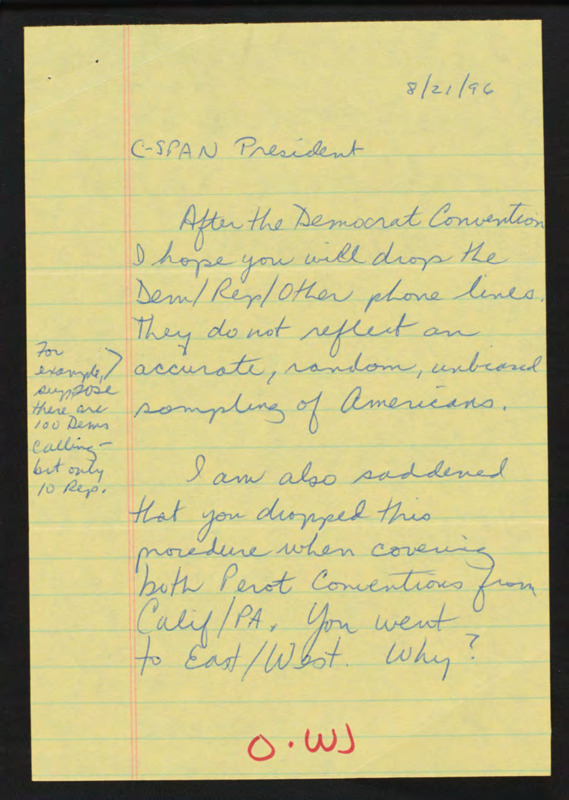 8/21/96
C-SPAN President
After the Democrat Convention
I hope you will drop the
Dem/Rep/Other phone lines.
They do not reflect an
accurate, random, unbiased
sampling of Americans.
For
example,
suppose
there are
100 Dems
calling -
but only
10 Rep.
I am also saddened
that you dropped this
procedure when covering
both Perot Conventions from
Calif/PA. You went
to East/West. Why?
O.WJ